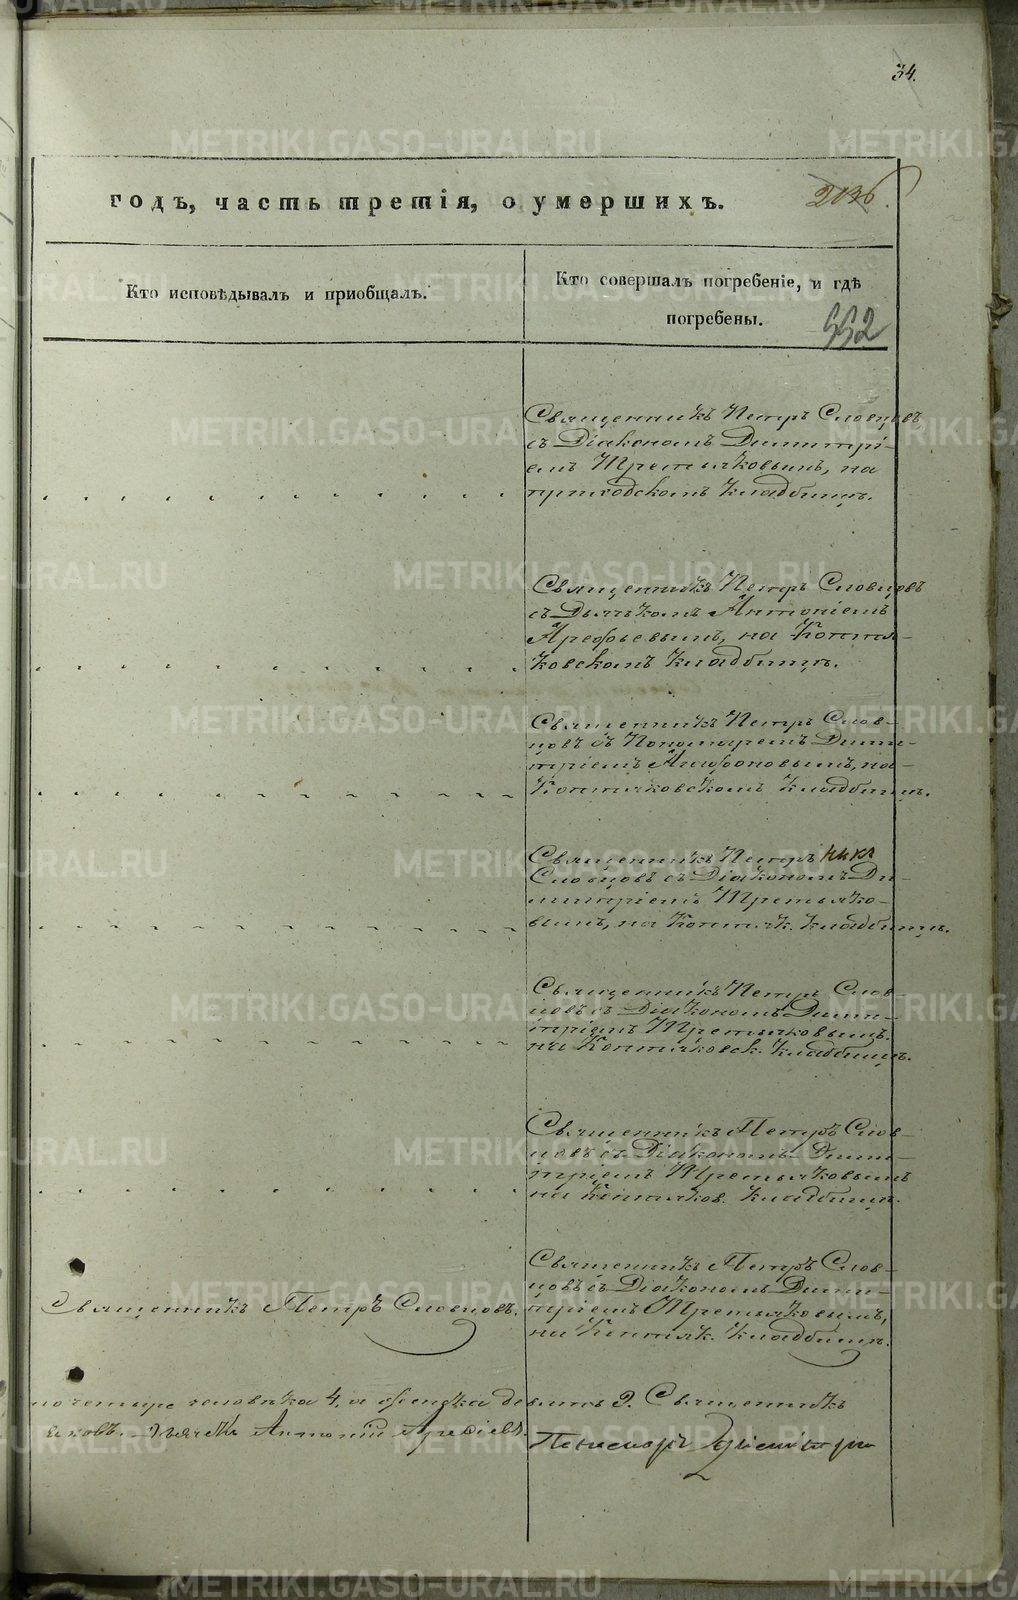 34.
годъ, часть третія, о умершихъ.
2036.
Кто исповѣдывалъ и приобщалъ.
Кто совершалъ погребеніе, и гдѣ
погребены.
552
Священникъ Петръ Словцовъ
съ Діакономъ Димитрі-
емъ Третьяковымъ, на
приходскомъ кладбищѣ.
Священникъ Петръ Словцовъ
съ Дьячкомъ Антоніемъ
Арефьевымъ, на Коптя-
ковскомъ кладбищѣ.
Священникъ Петръ Слов-
цовъ съ Пономаремъ Дими-
тріемъ на
Коптяковскомъ кладбищѣ.
Священникъ Петръ
Словцовъ съ Діакономъ Ди-
митріемъ Третьяко-
вымъ, на Коптяк. кладбищѣ.
Священникъ Петръ Слов-
цовъ съ Діакономъ Дими-
тріемъ Третьяковымъ
на Коптяковск. кладбищѣ.
Священникъ Петръ Слов-
цовъ съ Діакономъ Дими-
тріемъ Третьяковымъ
на Коптяков. кладбищѣ.
Священникъ Петръ Словцовъ.
Священникъ Петръ Слов-
цовъ съ Діакономъ Дими-
тріемъ Третьяковымъ,
на Коптяк. кладбищѣ.
четыре человѣка 4, а женска де вять 9. Священникъ
Дьячекъ Антоній Арефьевъ.
Пономарь
METRIKI.GASO-URAL.RU